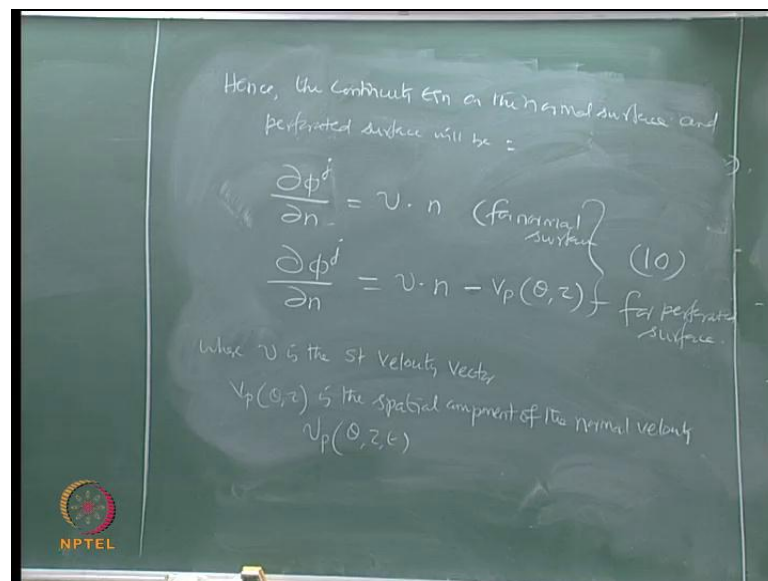 Hence, the continuity Eqn on the normal surface and
perforated surface will be :
∂φʲ/∂n = v · n (for normal surface
∂φʲ/∂n = v · n − Vp(θ,z) } (10) for perforated surface.
where v is the st velocity vector
Vp(θ,z) is the spatial component of the normal velocity
vp(θ,z,t)
NPTEL